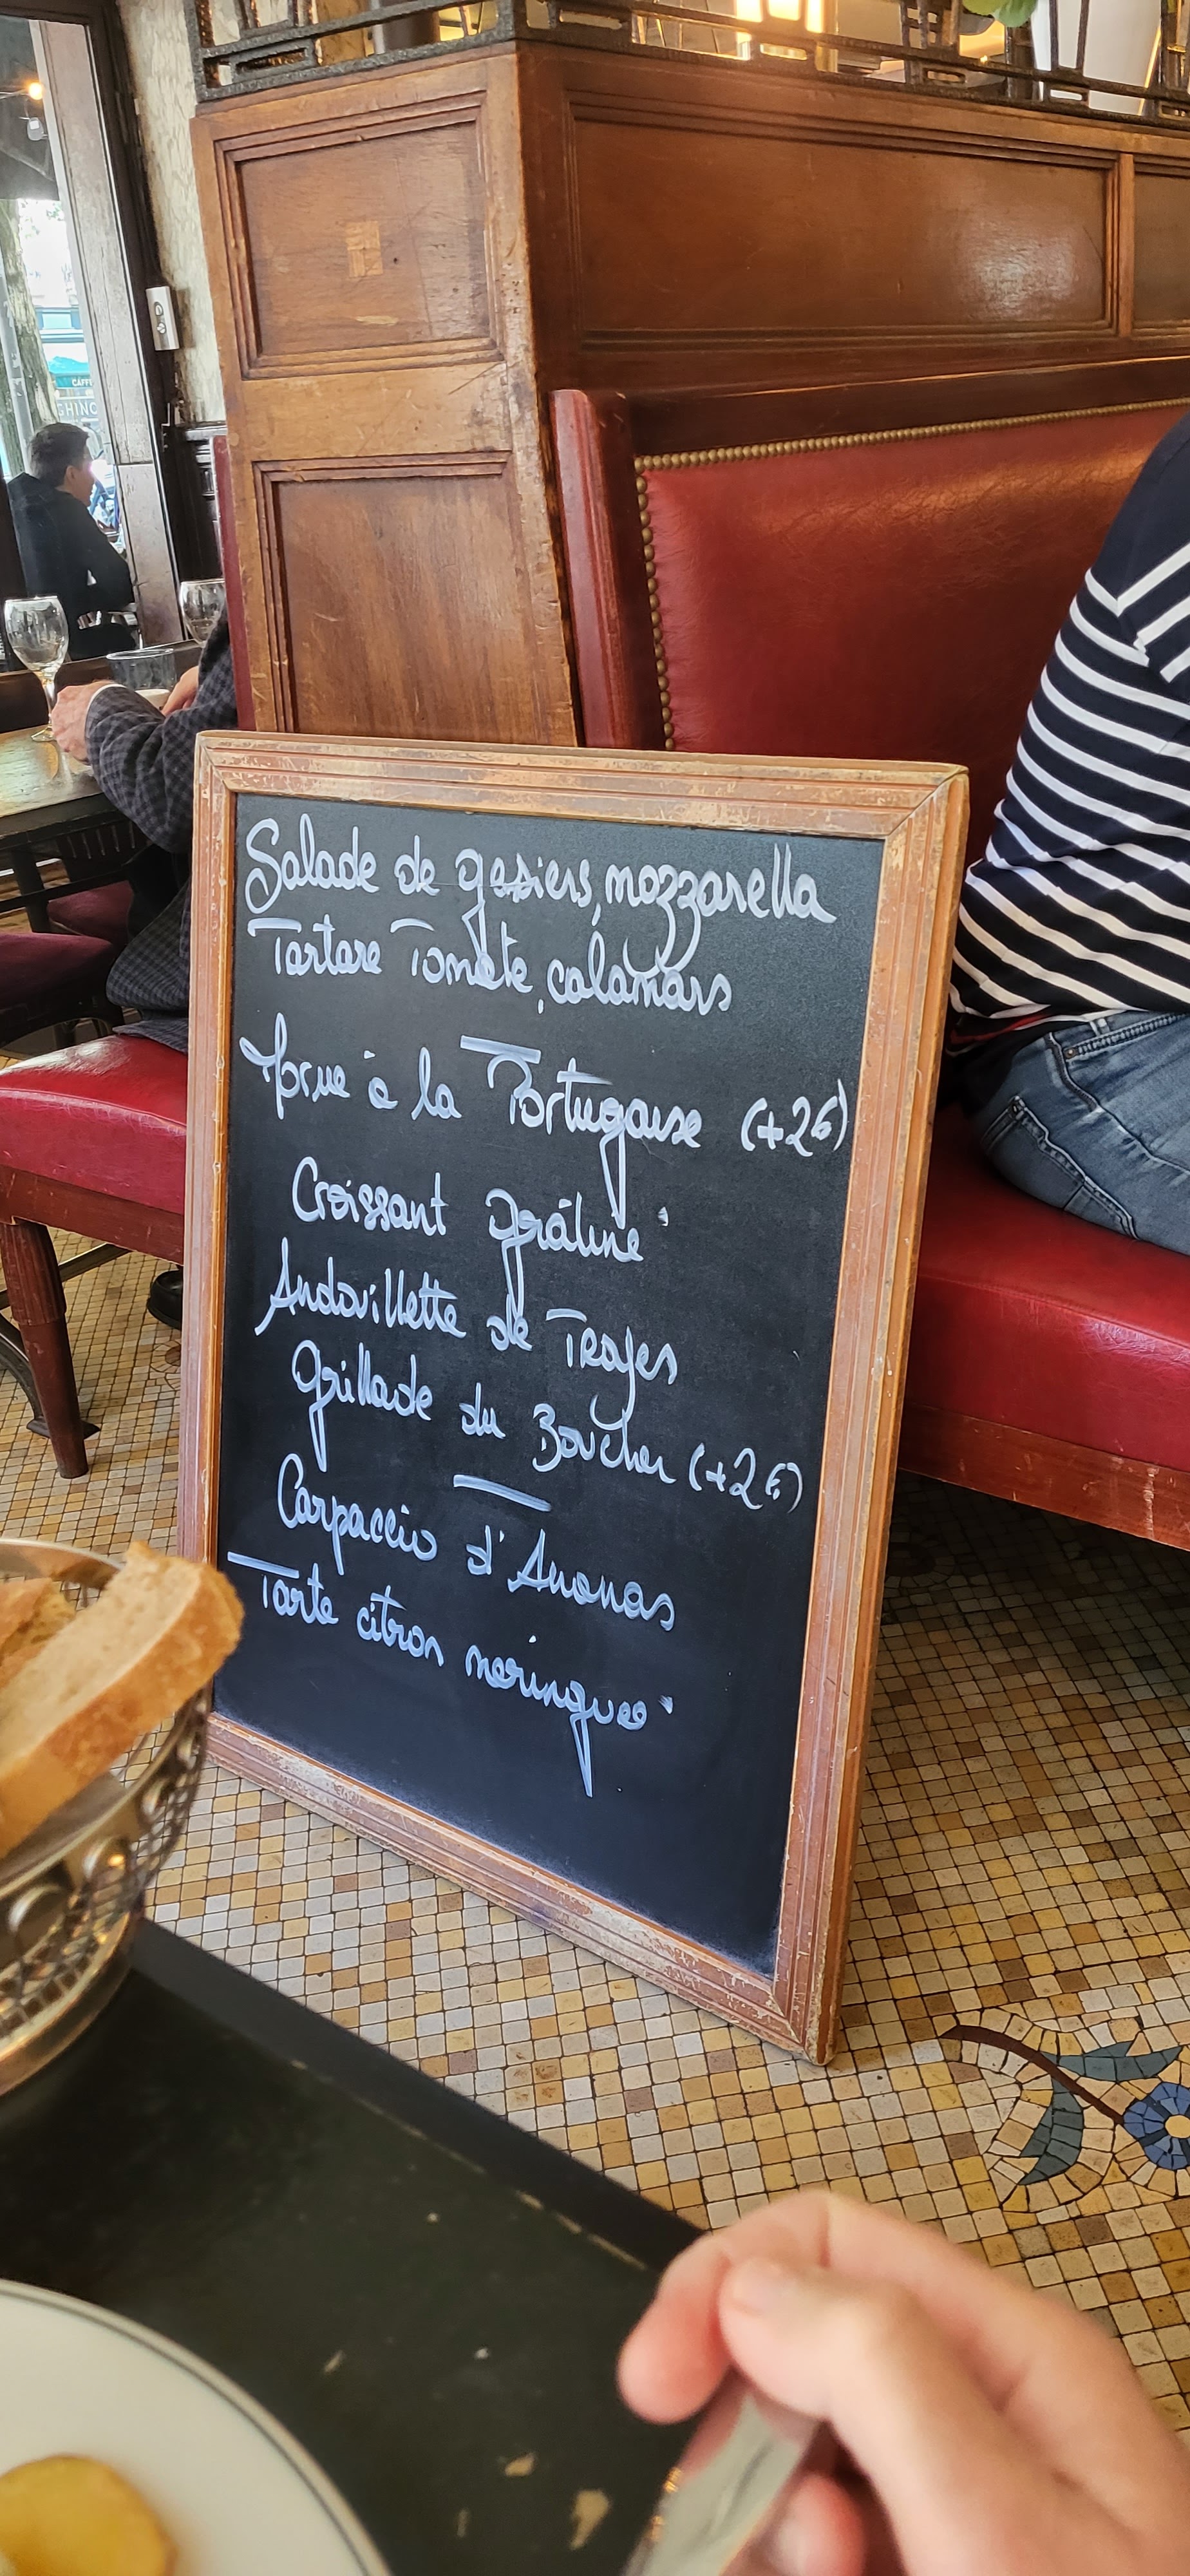 CAFFE
Salade de gesiers, mozzarella
Tartare Tomate, calamars
Morue à la Portugaise (+2€)
Croissant Praliné
Andouillette de Troyes
Grillade du Boucher (+2€)
Carpaccio d'Ananas
Tarte citron meringuée